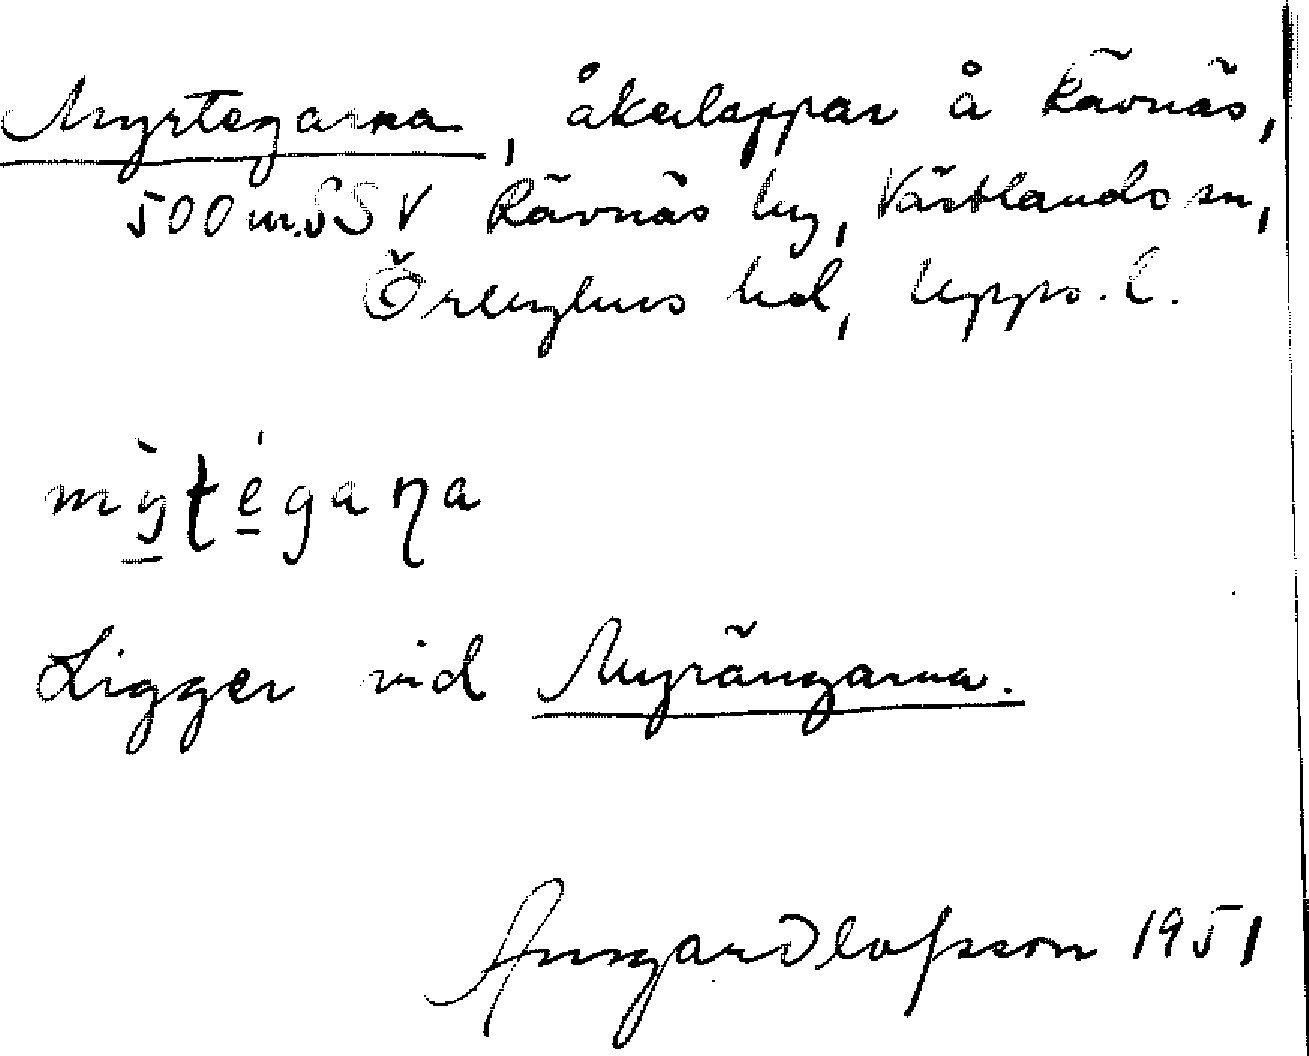 Myrtegarna, åkerlappar å Rävnäs,
500 m. SSV Rävnäs by, Västlands sn,
Örbyhus hd, Upps. l.
mỳt̠égaɳa
Ligger vid Myrängarna.
Olofsson 1951